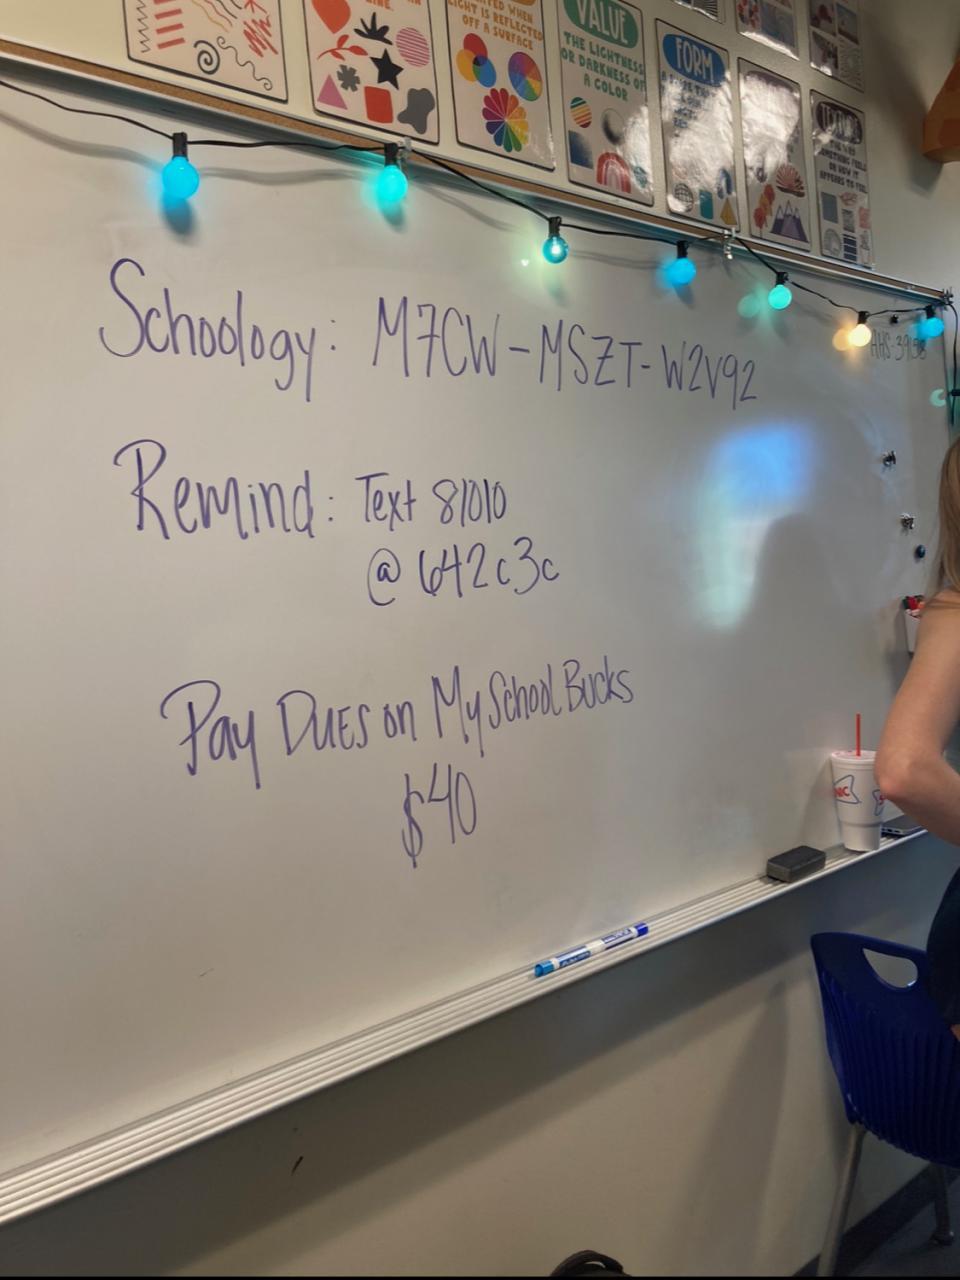 LIGHT IS REFLECTED
OFF A SURFACE
VALUE
THE LIGHTNESS
OR DARKNESS OF
A COLOR
FORM
Schoology: M7CW-MSZT-W2V92
Remind: Text 81010
@642c3c
Pay Dues on MySchoolBucks
$40